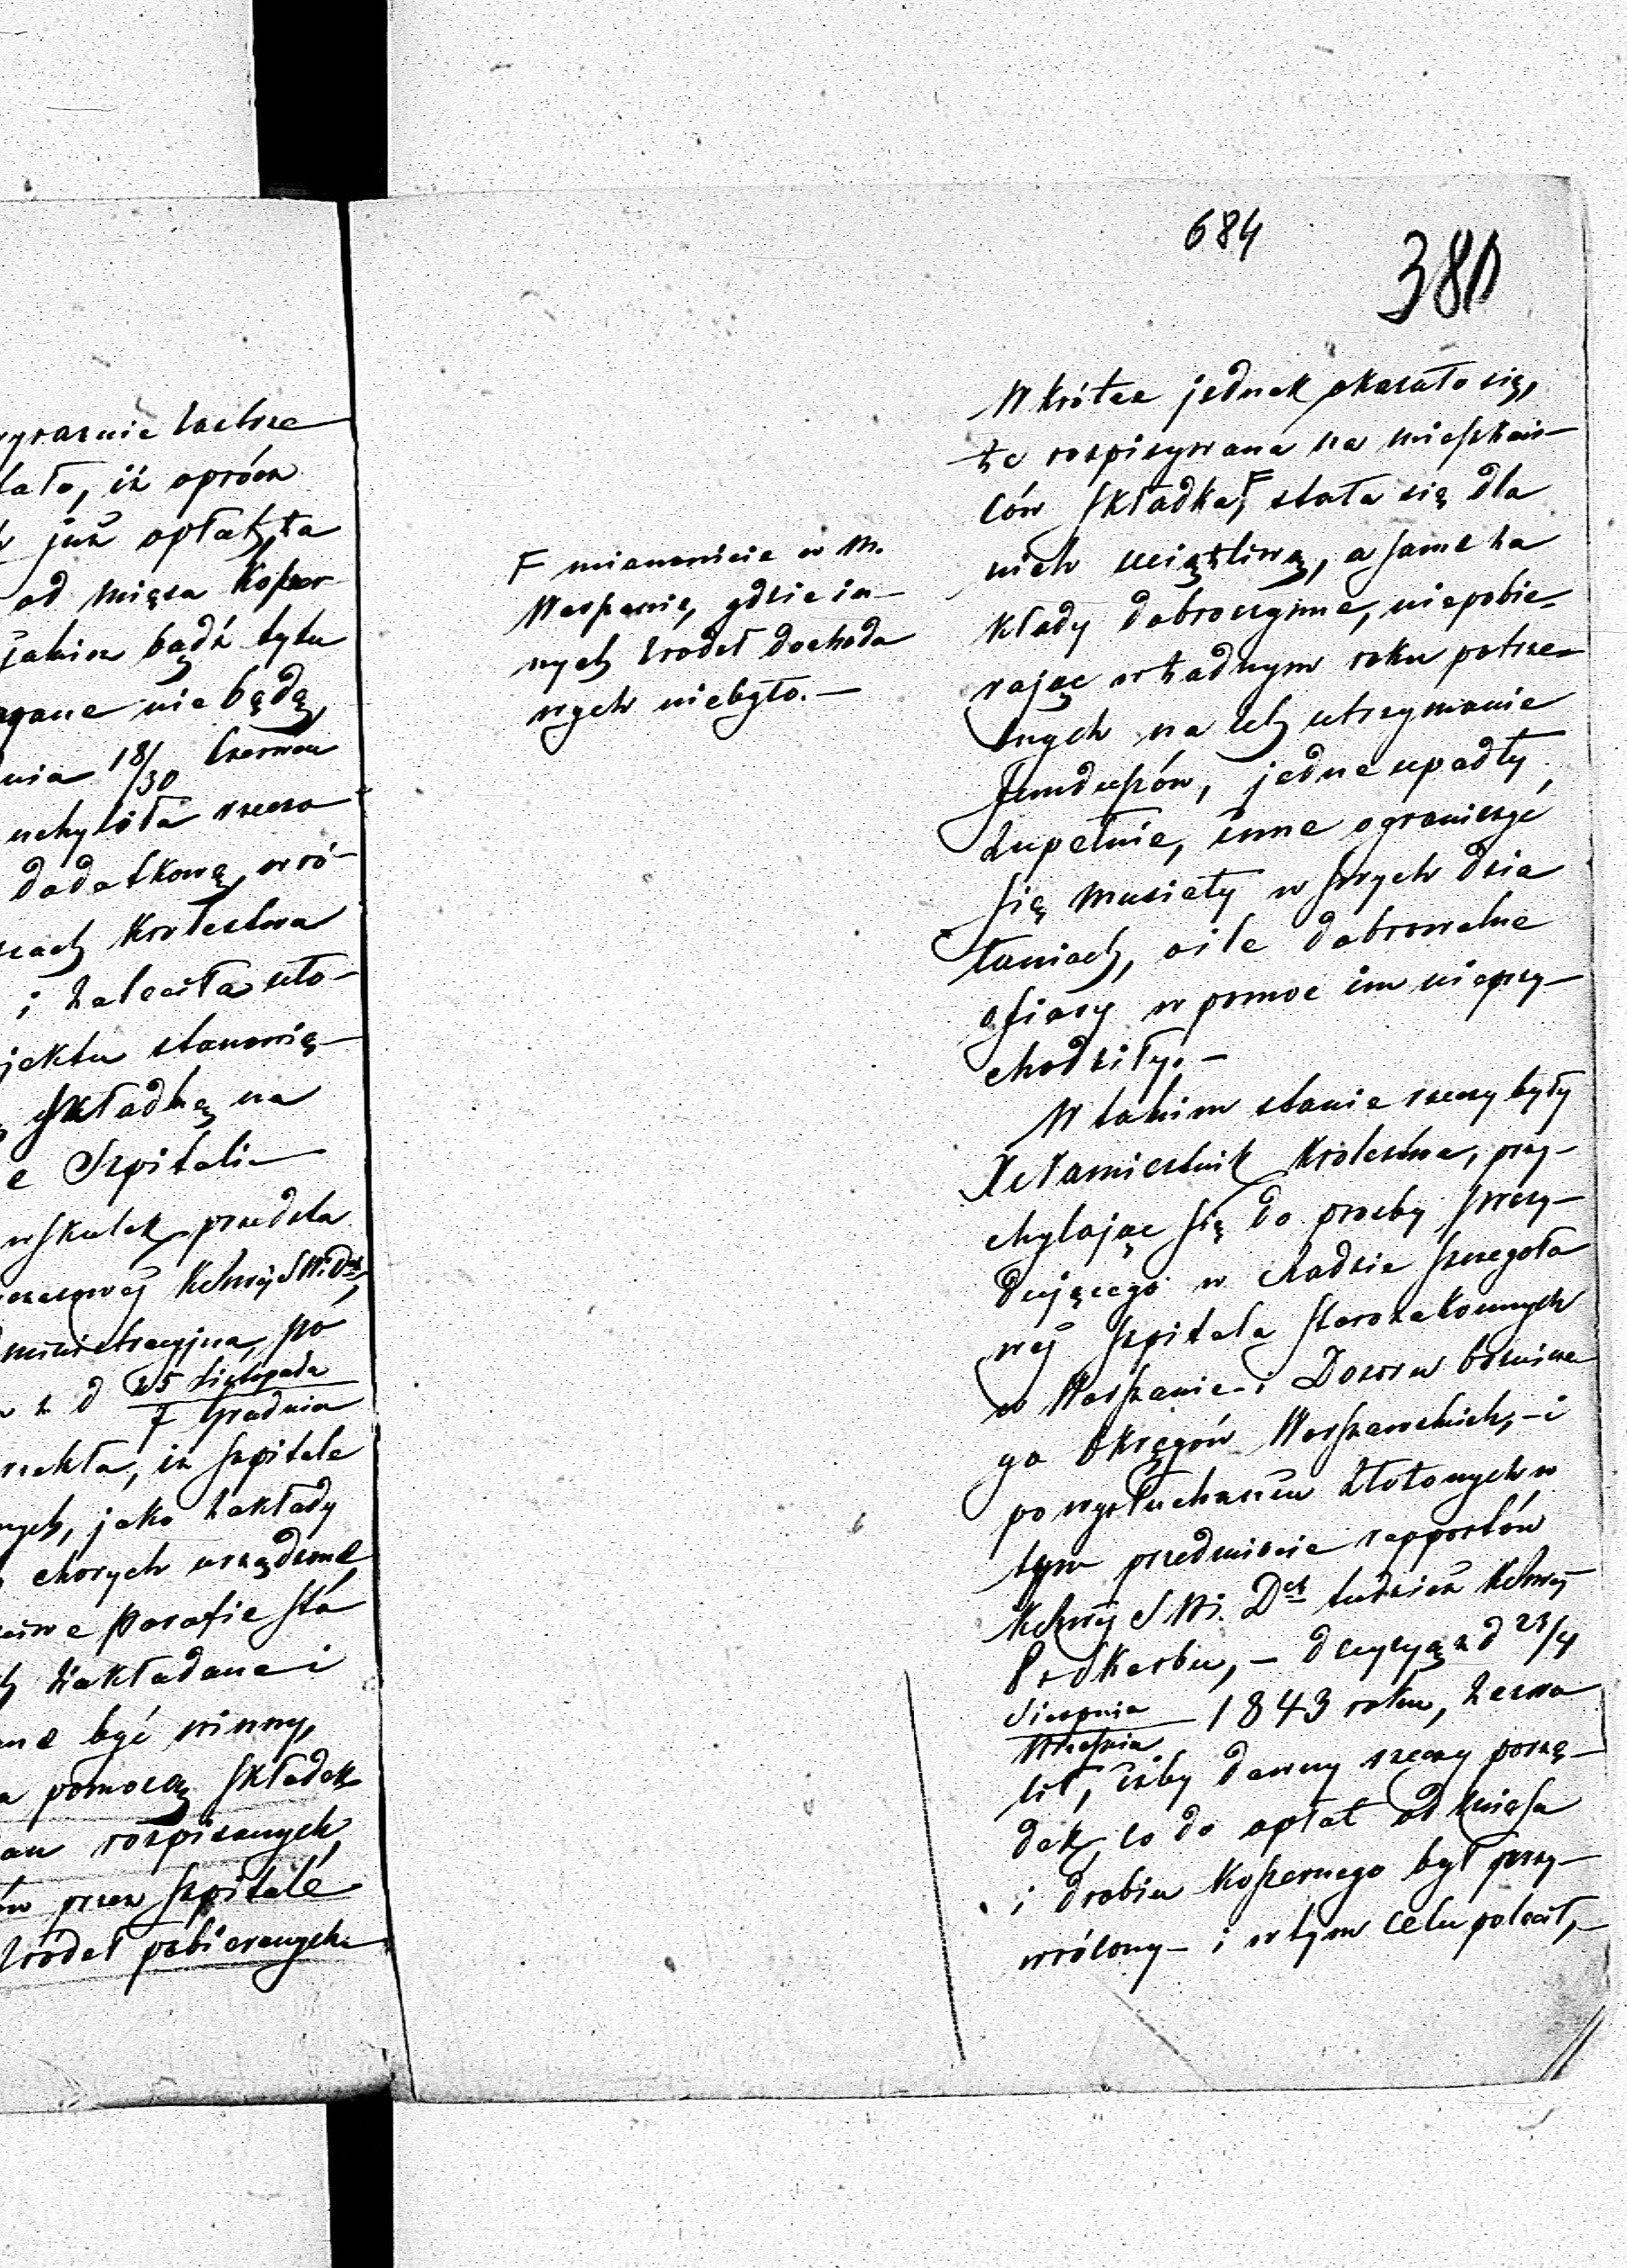 wyraznie zastrze
ało, iż oprócz
już opłat, ta
od mięsa Koszer
jakim bądź tytu
gane nie będą,
nia 18/30 Czerwca
uchyliła rzeczo
dodatkową, wró-
cach Krolestwa
i zaleciła uło-
jektu stanowią-
składkę na
e Szpitali
wskutek przedsta
Kchnej S. W. i D.
ministracyjna, po
z d 25 Listopada
7 Grudnia
rzekła, iż szpitale
nych, jako zakłady
chorych urządzone
Parafie sta
zakładane i
ane być winny,
a pomocą składek
rozpisanych
ów przez szpitale
zrodeł pobieranych
684
380
F mianowicie w M.
Warszawie, gdzie in-
nych zrodeł dochodo
wych niebyło. —
W krótce jednak okazało się,
że rozpisywana na mieszkań-
ców składka, F stała się dla
nich uciążliwą, a same za
kłady dobroczynne, niepobie-
rając w żadnym roku potrze-
bnych na ich utrzymanie
funduszów, jedne upadły
zupełnie, inne ograniczyć
się musiały w swych dzia
łaniach, oile dobrowolne
ofiary w pomoc im nieprzy-
chodziły. —
W takim stanie rzeczy były
X Namiestnik Krolestwa, przy-
chylając się do prosby prezy-
dującego w Radzie szczegoło
wej szpitala starozakonnych
w Warszawie i Dozoru bożnicze
go Okręgów Warszawskich, - i
po wysłuchaniu złożonych w
tym przedmiocie rapportów
Kchnej S. W. i D. tudzież Kchnej
P. i Skarbu, — decyzyą z d 23/4
Sierpnia
Września 1843 roku, zezwo
lił, iżby dawny rzeczy porzą-
dek, co do opłat od mięsa
i drobiu koszernego był przy-
wrócony — i w tym celu polecił, —